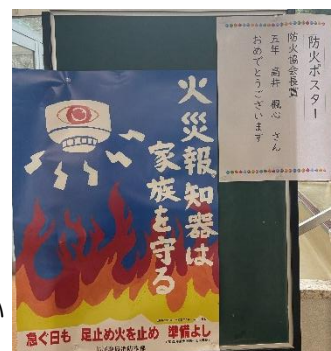 防火ポスター
防火協会長賞
五年
さん
おめでとうございます
火災報知器は
家族を守る
急ぐ日も 足止め火を止め 準備よし